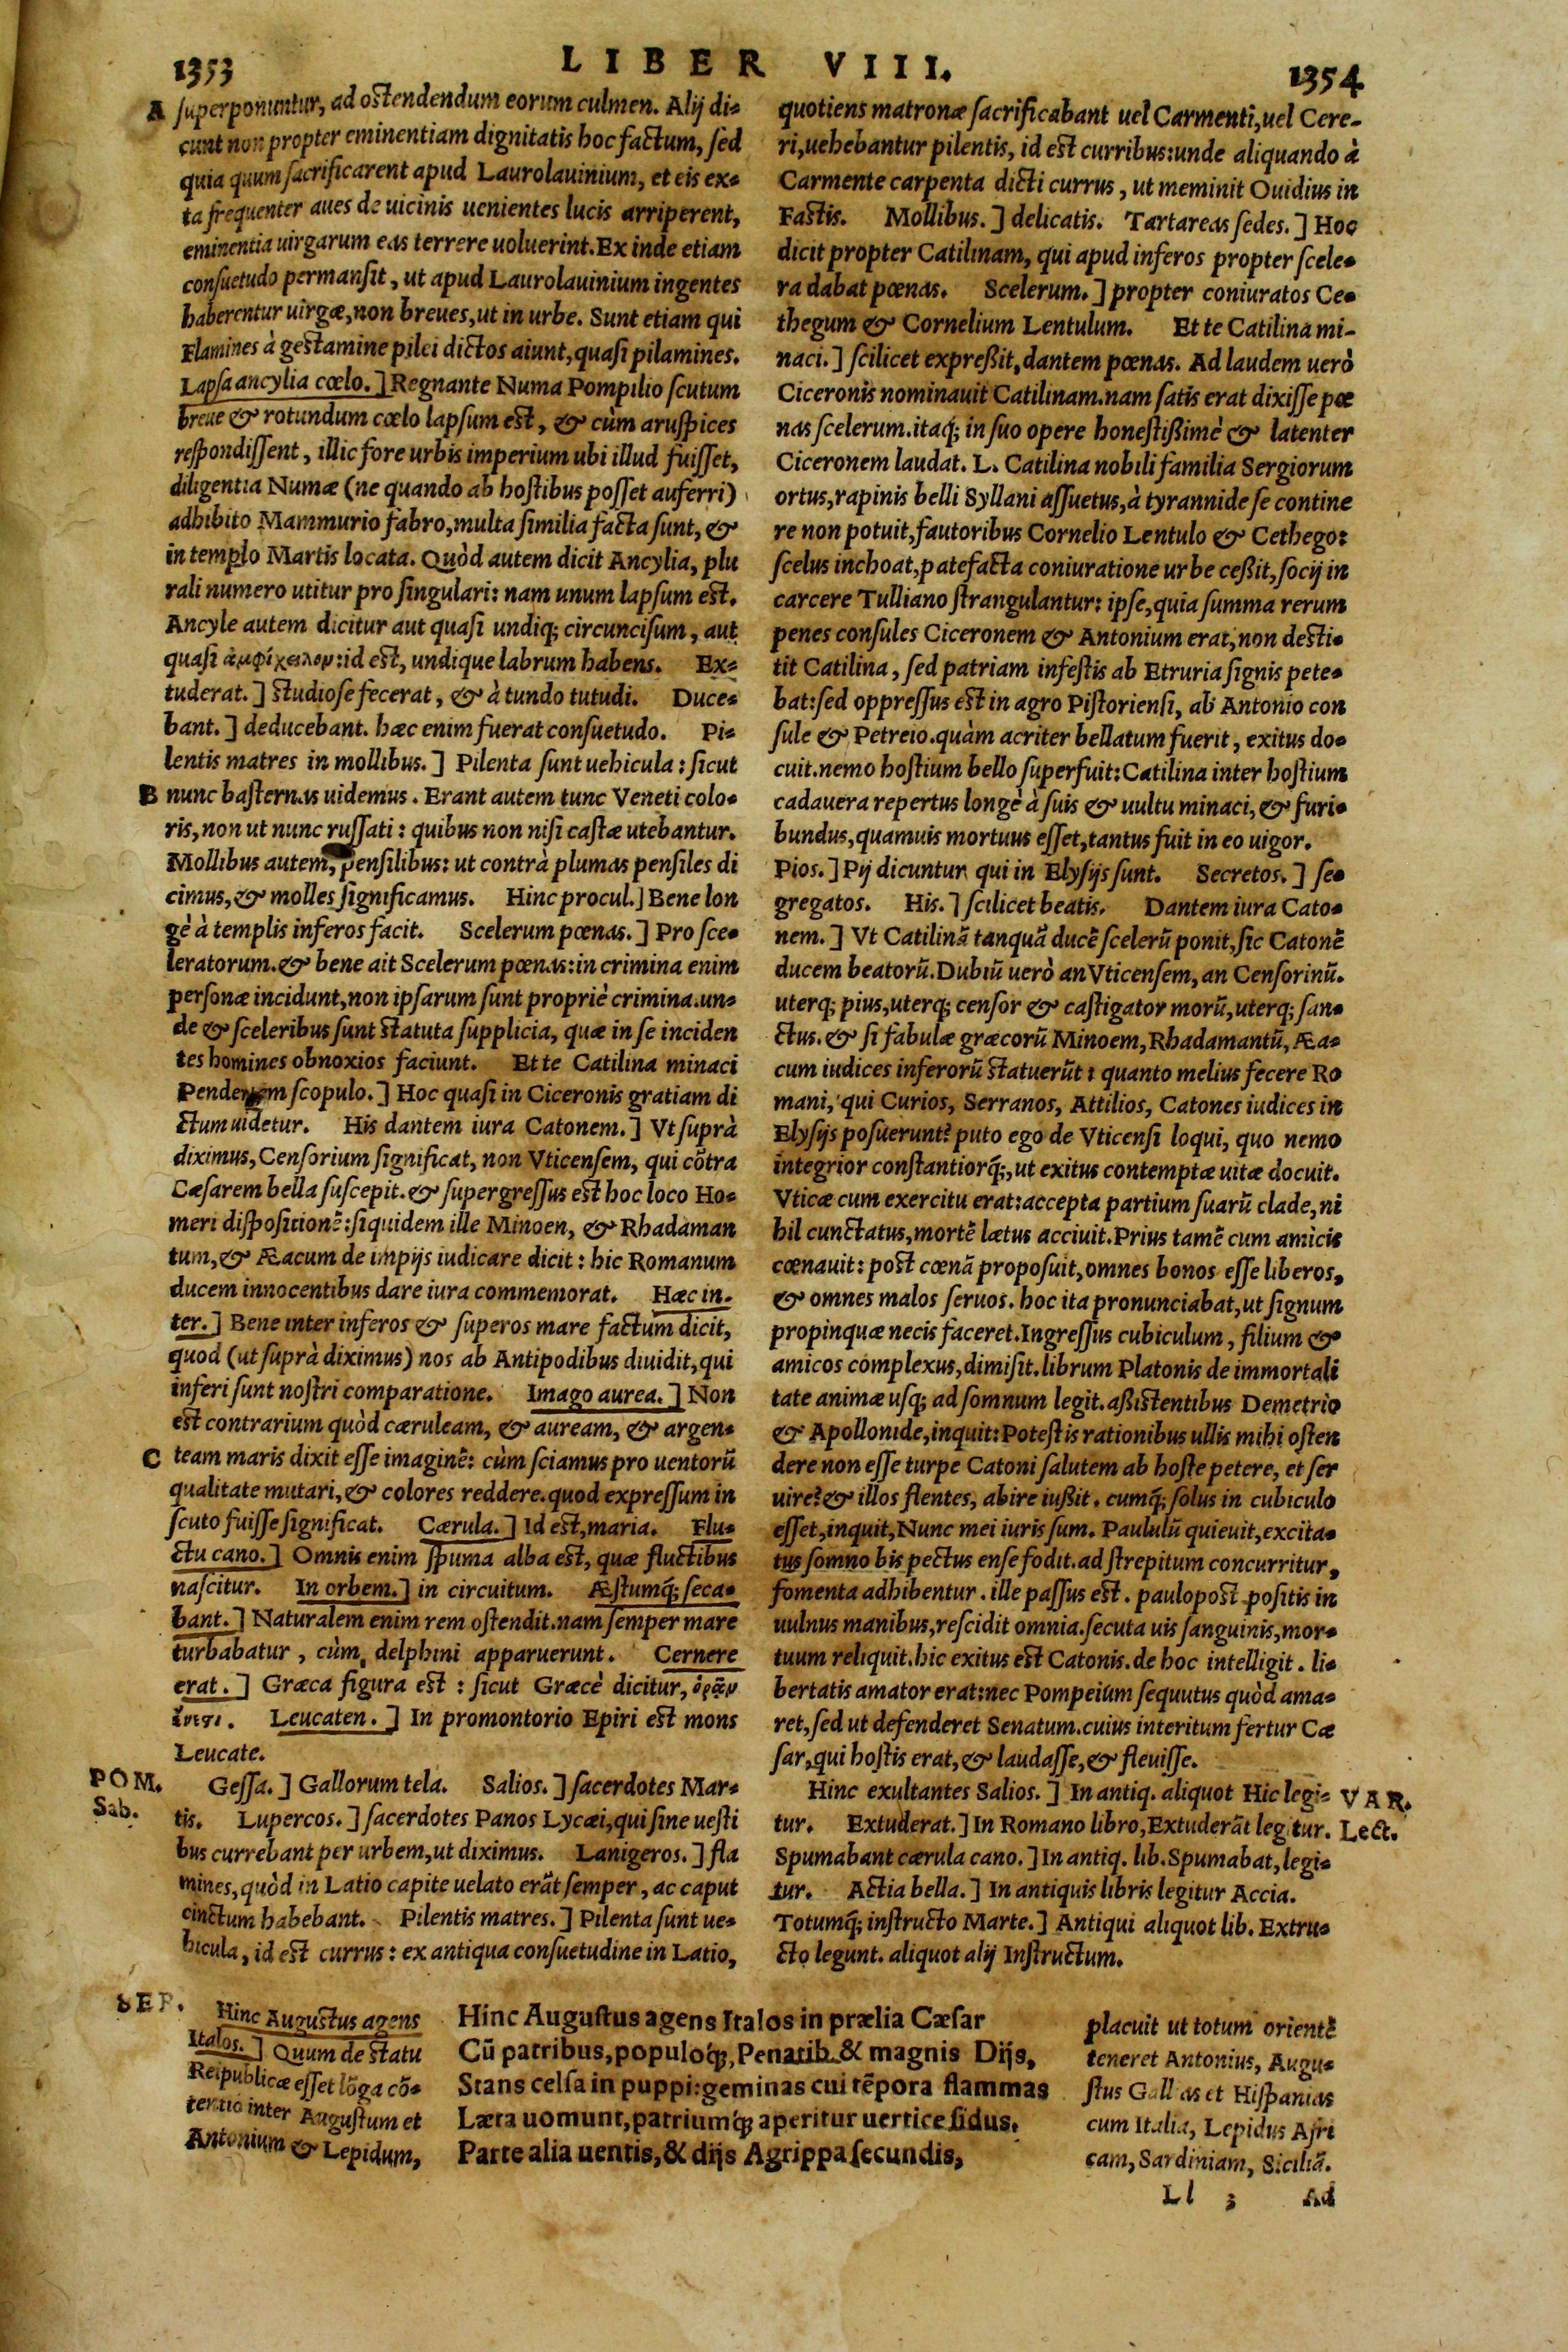 1353
LIBER VIII.
1354
A superponuntur, ad ostendendum eorum culmen. Alij di-
cunt non propter eminentiam dignitatis hoc factum, sed
quia quum sacrificarent apud Laurolauinium, et eis ex-
ta frequenter aues de uicinis uenientes lucis arriperent,
eminentia uirgarum eas terrere uoluerint. Ex inde etiam
consuetudo permansit, ut apud Laurolauinium ingentes
haberentur uirgæ, non breues, ut in urbe. Sunt etiam qui
Flamines à gestamine pilei dictos aiunt, quasi pilamines.
Lapsa ancylia cœlo.] Regnante Numa Pompilio scutum
breue & rotundum cœlo lapsum est, & cùm aruspices
respondissent, illic fore urbis imperium ubi illud fuisset,
diligentia Numæ (ne quando ab hostibus posset auferri)
adhibito Mammurio fabro, multa similia facta sunt, &
in templo Martis locata. Quòd autem dicit Ancylia, plu
rali numero utitur pro singulari: nam unum lapsum est.
Ancyle autem dicitur aut quasi undiq; circuncisum, aut
quasi ἀμφίχειλον: id est, undique labrum habens. Ex-
tuderat.] studiose fecerat, & à tundo tutudi. Duce-
bant.] deducebant. hæc enim fuerat consuetudo. Pi-
lentis matres in mollibus.] Pilenta sunt uehicula: sicut
B nunc basternas uidemus. Erant autem tunc Veneti colo-
ris, non ut nunc russati: quibus non nisi castæ utebantur.
Mollibus autem, pensilibus: ut contrà plumas pensiles di
cimus, & molles significamus. Hinc procul.] Bene lon
gè à templis inferos facit. Scelerum pœnas.] Pro sce-
leratorum. & bene ait Scelerum pœnas: in crimina enim
personæ incidunt, non ipsarum sunt propriè crimina. un-
de & sceleribus sunt statuta supplicia, quæ in se inciden
tes homines obnoxios faciunt. Et te Catilina minaci
Pendentem scopulo.] Hoc quasi in Ciceronis gratiam di
ctum uidetur. His dantem iura Catonem.] Vt suprà
diximus, Censorium significat, non Vticensem, qui cōtra
Cæsarem bella suscepit. & supergressus est hoc loco Ho-
meri dispositionē: siquidem ille Minoen, & Rhadaman
tum, & Æacum de impijs iudicare dicit: hic Romanum
ducem innocentibus dare iura commemorat. Hæc in-
ter.] Bene inter inferos & superos mare factum dicit,
quod (ut suprà diximus) nos ab Antipodibus diuidit, qui
inferi sunt nostri comparatione. Imago aurea.] Non
est contrarium quòd cæruleam, & auream, & argen-
C team maris dixit esse imaginē: cùm sciamus pro uentorū
qualitate mutari, & colores reddere. quod expressum in
scuto fuisse significat. Cærula.] Id est, maria. Flu-
ctu cano.] Omnis enim spuma alba est, quæ fluctibus
nascitur. In orbem.] in circuitum. Æstumq; seca-
bant.] Naturalem enim rem ostendit. nam semper mare
turbabatur, cùm delphini apparuerunt. Cernere
erat.] Græca figura est: sicut Græcè dicitur, ὁρᾶν
ἔνεστι. Leucaten.] In promontorio Epiri est mons
Leucate.
POM. Gessa.] Gallorum tela. Salios.] sacerdotes Mar-
Sab. tis. Lupercos.] sacerdotes Panos Lycæi, qui sine uesti
bus currebant per urbem, ut diximus. Lanigeros.] fla
mines, quòd in Latio capite uelato erāt semper, ac caput
cinctum habebant. Pilentis matres.] Pilenta sunt ue-
hicula, id est currus: ex antiqua consuetudine in Latio,
quotiens matronæ sacrificabant uel Carmenti, uel Cere-
ri, uehebantur pilentis, id est curribus: unde aliquando à
Carmente carpenta dicti currus, ut meminit Ouidius in
Fastis. Mollibus.] delicatis. Tartareas sedes.] Hoc
dicit propter Catilinam, qui apud inferos propter scele-
ra dabat pœnas. Scelerum.] propter coniuratos Ce-
thegum & Cornelium Lentulum. Et te Catilina mi-
naci.] scilicet expreßit, dantem pœnas. Ad laudem uerò
Ciceronis nominauit Catilinam. nam satis erat dixisse pœ
nas scelerum. itaq; in suo opere honestißimè & latenter
Ciceronem laudat. L. Catilina nobili familia Sergiorum
ortus, rapinis belli Syllani assuetus, à tyrannide se contine
re non potuit, fautoribus Cornelio Lentulo & Cethego:
scelus inchoat, patefacta coniuratione urbe ceßit, socij in
carcere Tulliano strangulantur: ipse, quia summa rerum
penes consules Ciceronem & Antonium erat, non desti-
tit Catilina, sed patriam infestis ab Etruria signis pete-
bat: sed oppressus est in agro Pistoriensi, ab Antonio con
sule & Petreio. quàm acriter bellatum fuerit, exitus do-
cuit. nemo hostium bello superfuit: Catilina inter hostium
cadauera repertus longè à suis & uultu minaci, & furi-
bundus, quamuis mortuus esset, tantus fuit in eo uigor.
Pios.] Pij dicuntur qui in Elysijs sunt. Secretos.] se-
gregatos. His.] scilicet beatis. Dantem iura Cato-
nem.] Vt Catilinā tanquā ducē scelerū ponit, sic Catonē
ducem beatorū. Dubiū uerò an Vticensem, an Censorinū.
uterq; pius, uterq; censor & castigator morū, uterq; san-
ctus. & si fabulæ græcorū Minoem, Rhadamantū, Æa-
cum iudices inferorū statuerūt: quanto melius fecere Ro
mani, qui Curios, Serranos, Attilios, Catones iudices in
Elysijs posuerunt? puto ego de Vticensi loqui, quo nemo
integrior constantiorq́;, ut exitus contemptæ uitæ docuit.
Vticæ cum exercitu erat: accepta partium suarū clade, ni
hil cunctatus, mortē lætus acciuit. Prius tamē cum amicis
cœnauit: post cœnā proposuit, omnes bonos esse liberos,
& omnes malos seruos. hoc ita pronunciabat, ut signum
propinquæ necis faceret. Ingressus cubiculum, filium &
amicos complexus, dimisit. librum Platonis de immortali
tate animæ usq; ad somnum legit. aßistentibus Demetrio
& Apollonide, inquit: Potestis rationibus ullis mihi osten
dere non esse turpe Catoni salutem ab hoste petere, et ser
uire? & illos flentes, abire iußit. cumq́; solus in cubiculo
esset, inquit, Nunc mei iuris sum. Paululū quieuit, excita-
tus somno bis pectus ense fodit. ad strepitum concurritur,
fomenta adhibentur. ille passus est. paulopost positis in
uulnus manibus, rescidit omnia. secuta uis sanguinis, mor-
tuum reliquit. hic exitus est Catonis. de hoc intelligit. li-
bertatis amator erat: nec Pompeium sequutus quòd ama-
ret, sed ut defenderet Senatum. cuius interitum fertur Cæ
sar, qui hostis erat, & laudasse, & fleuisse.
Hinc exultantes Salios.] In antiq. aliquot Hic legi- VAR.
tur. Extuderat.] In Romano libro, Extuderāt legitur. Lect.
Spumabant cærula cano.] In antiq. lib. Spumabat, legi-
tur. Actia bella.] In antiquis libris legitur Accia.
Totumq́; instructo Marte.] Antiqui aliquot lib. Extru-
cto legunt. aliquot alij Instructum.
SER. Hinc Augustus agens
Italos.] Quum de statu
Reipublicæ esset lōga cō-
tentio inter Augustum et
Antonium & Lepidum,
Hinc Augustus agens Italos in prælia Cæsar
Cū patribus, populoq́;, Penatib. & magnis Dijs,
Stans celsa in puppi: geminas cui tēpora flammas
Læta uomunt, patriumq́; aperitur uertice sidus.
Parte alia uentis, & dijs Agrippa secundis,
placuit ut totum orientē
teneret Antonius, Augu-
stus Gallias et Hispanias
cum Italia, Lepidus Afri
cam, Sardiniam, Siciliā.
Ll 3 Ad